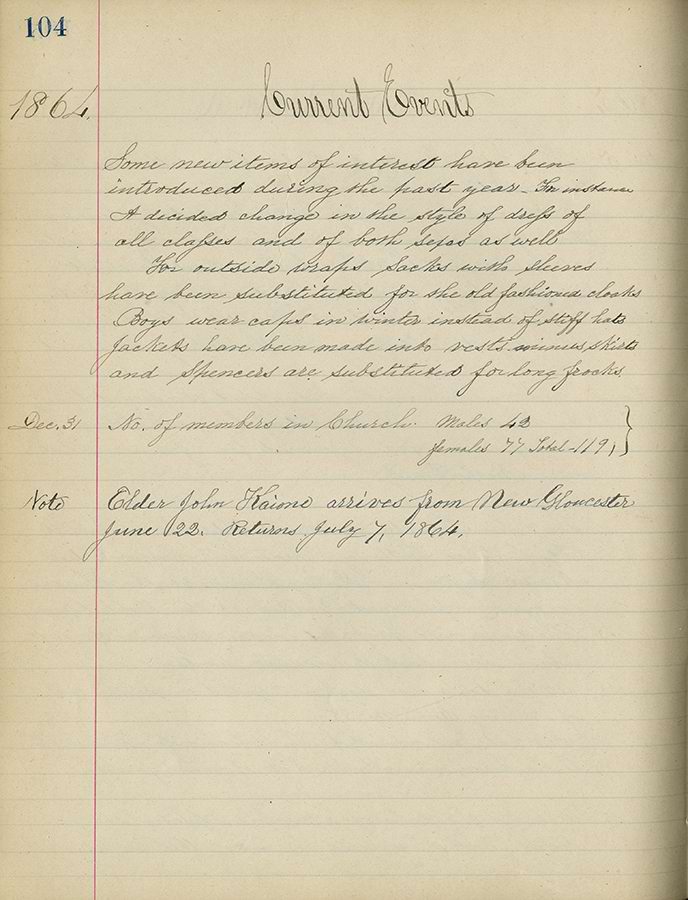 104
1864. Current Events
Some new items of interest have been
introduced during the past year - For instance
A decided change in the style of dress of
all classes and of both sexes as well
For outside wraps Sacks with sleeves
have been substituted for the old fashioned cloaks
Boys wear caps in winter instead of stiff hats
Jackets have been made into vests minus skirts
and Spencers are substituted for long frocks
Dec. 31 No. of members in Church. Males 42
females 77 Total 119,
Note Elder John Kaime arrives from New Gloucester
June 22. Returns July 7, 1864.